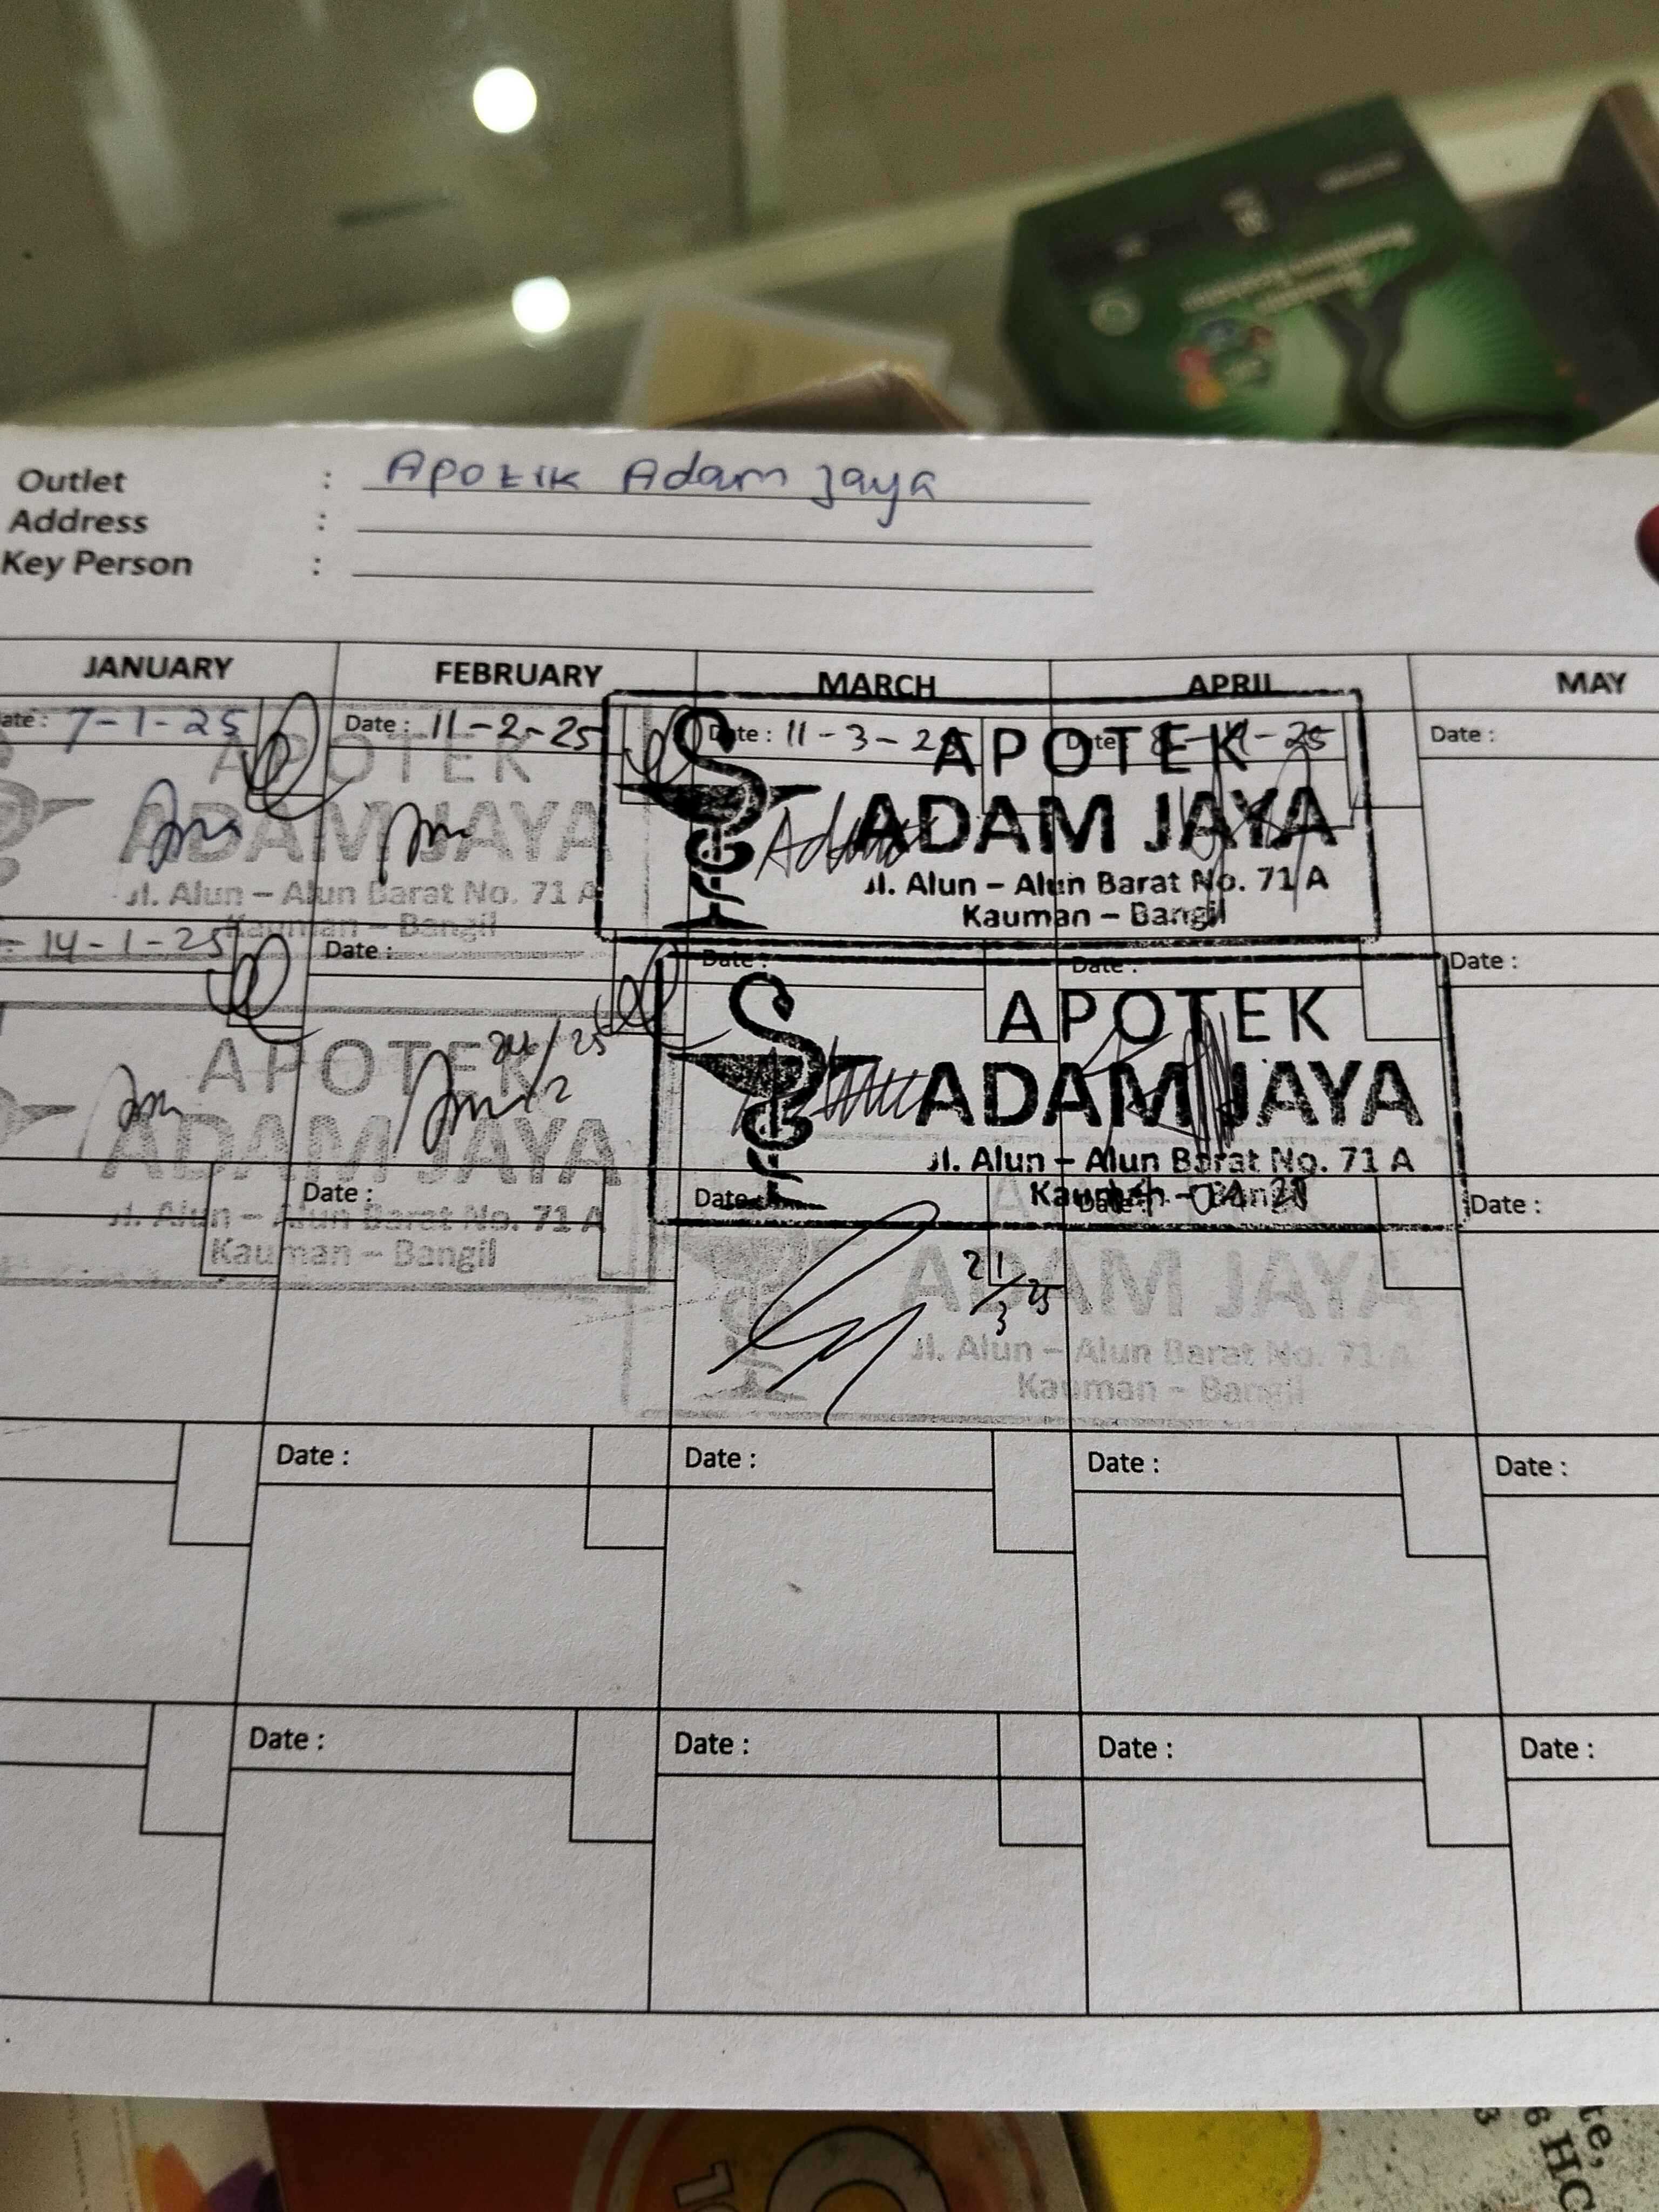 Outlet : Apotik Adam Jaya
Address :
Key Person :
JANUARY FEBRUARY MARCH APRIL MAY
ate : 7-1-25 Date : 11-2-25 Date : 11-3-25 Date -25 Date :
APOTEK
ADAM JAYA
Jl. Alun - Alun Barat No. 71 A
Kauman - Bangil
APOTEK
ADAM JAYA
Jl. Alun - Alun Barat No. 71 A
Kauman - Bangil
- 14-1-25 Date : Date : Date : Date :
24/2 25
APOTEK
ADAM JAYA
Jl. Alun - Alun Barat No. 71 A
Kauman - Bangil
APOTEK
ADAM JAYA
Jl. Alun - Alun Barat No. 71 A
Kauman - Bangil
Date : Date : Date Date :
21/3 25
ADAM JAYA
Jl. Alun - Alun Barat No. 71 A
Kauman - Bangil
Date : Date : Date : Date :
Date : Date : Date : Date :